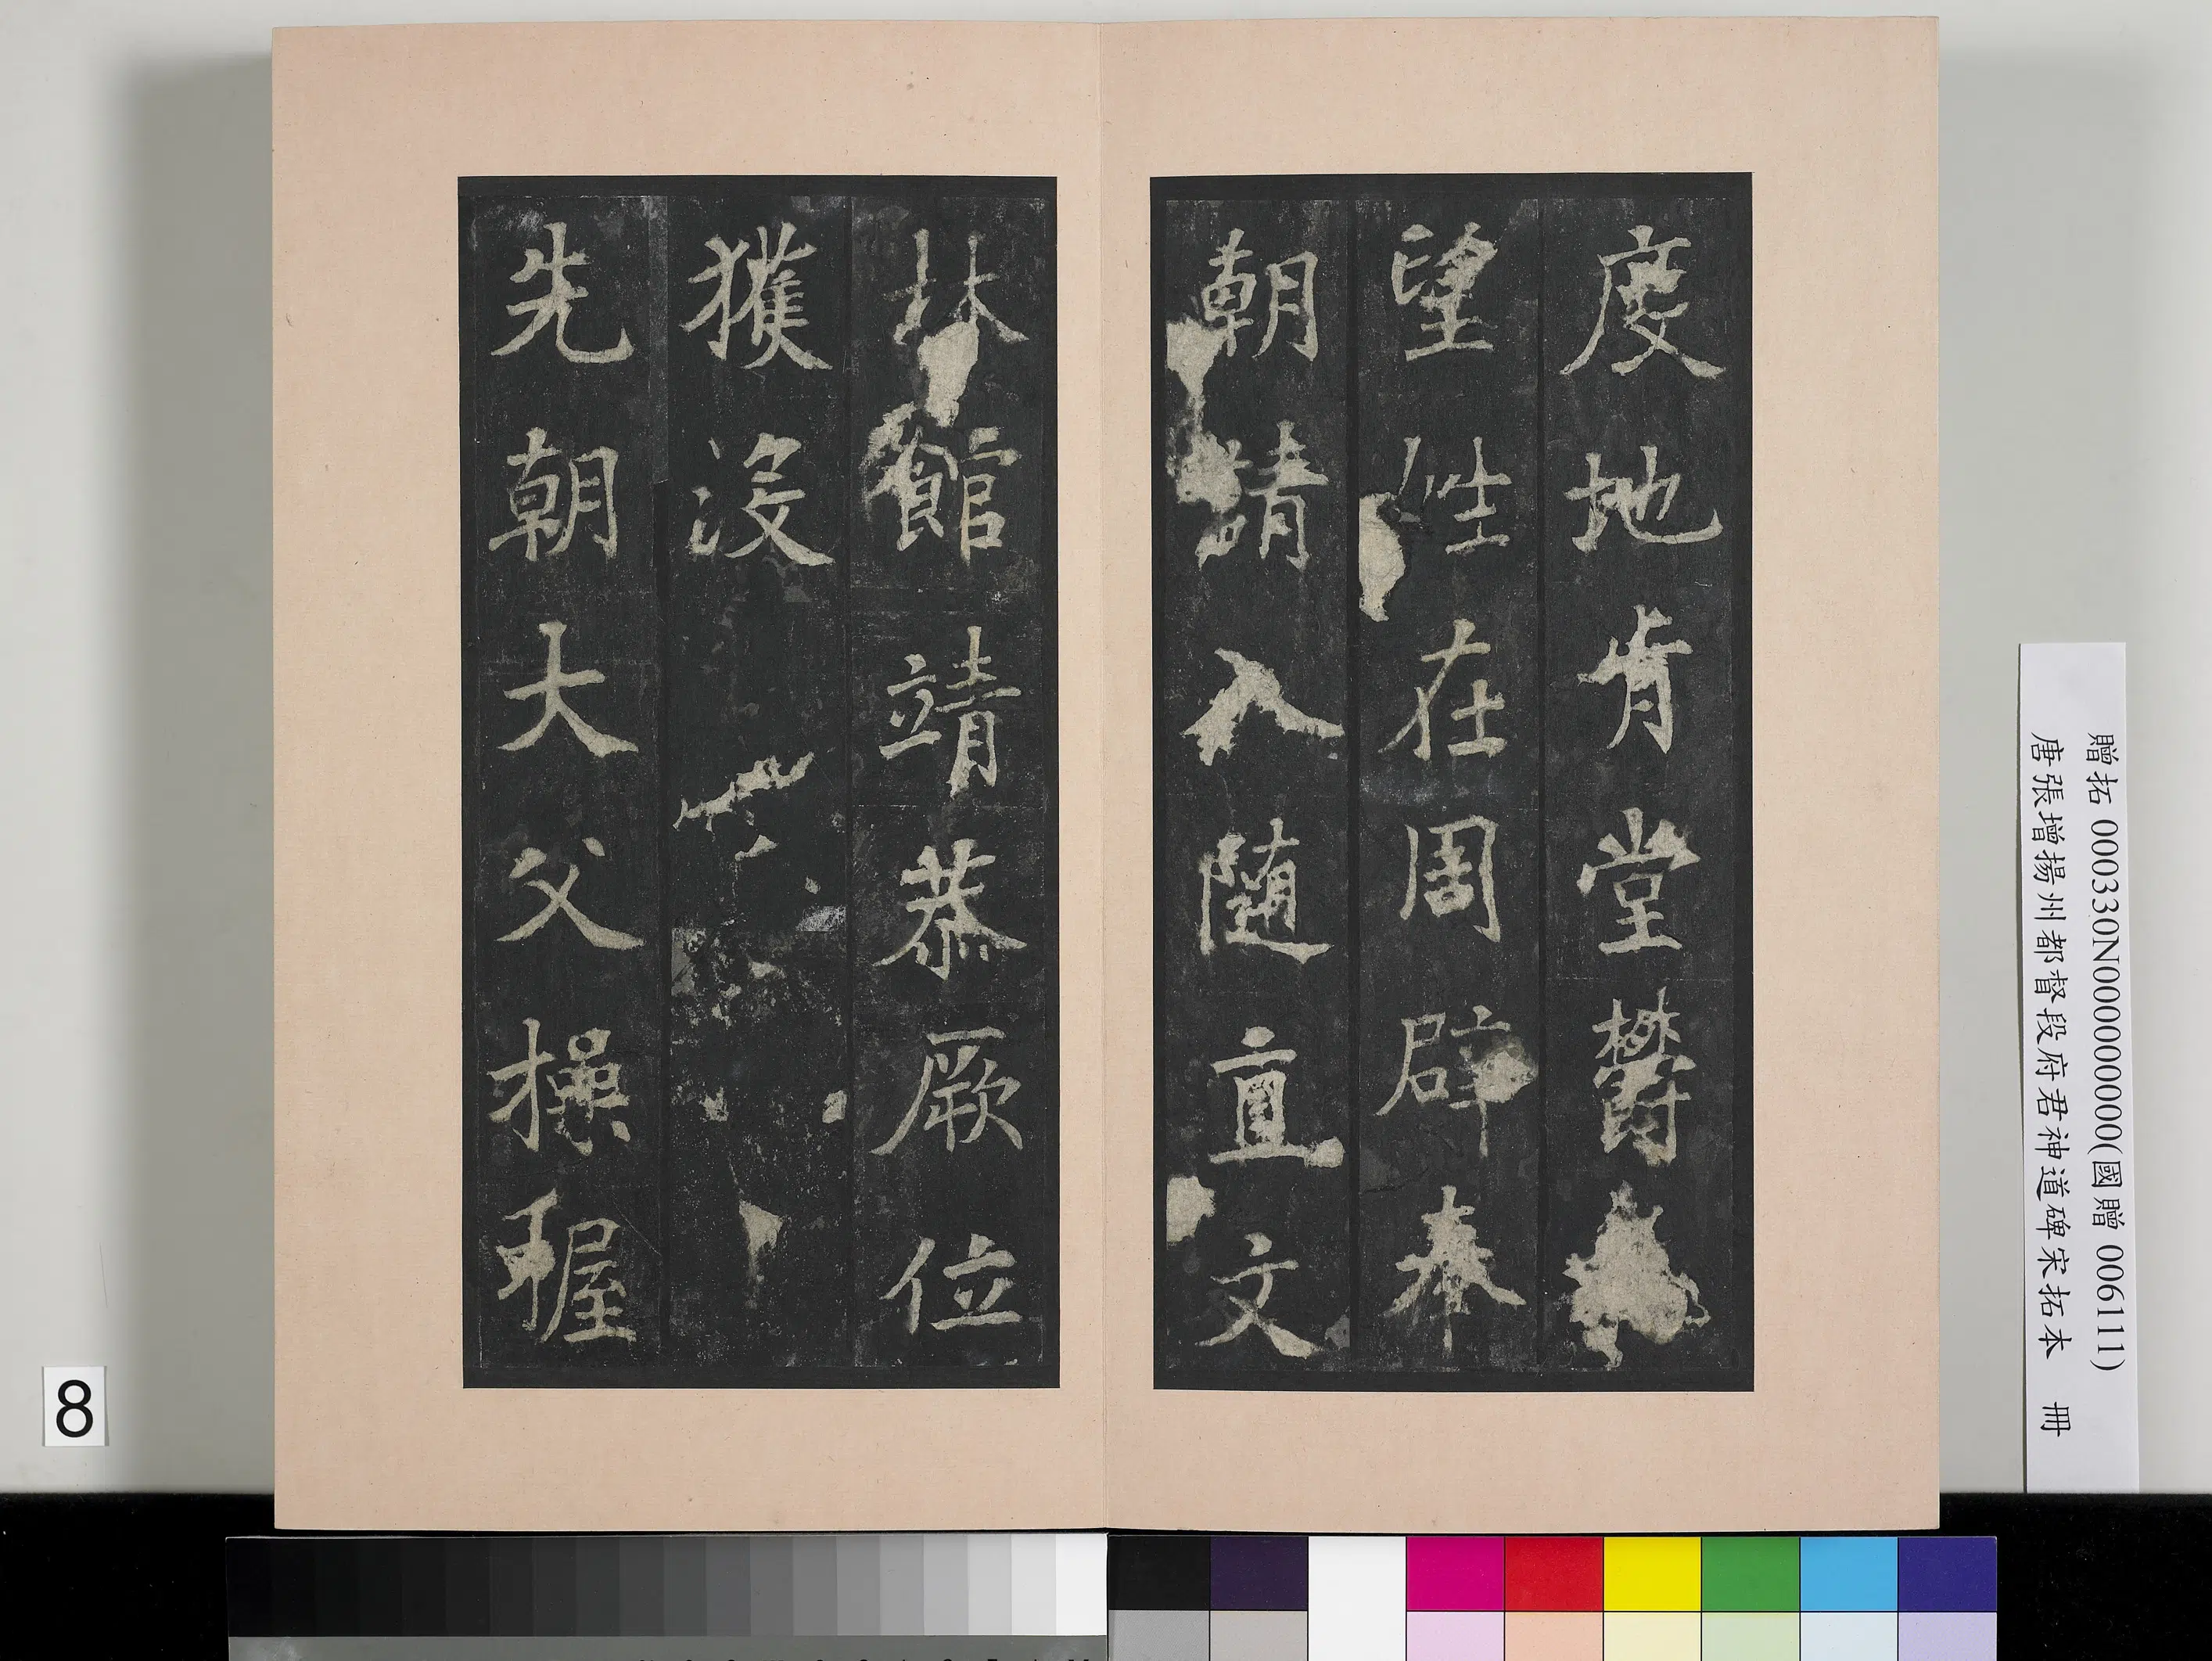 度地肯堂欝
望姓在周辟奉
朝請入隨直文
林館靖恭厥位
獲沒
先朝大父操握
贈拓 000330N000000000(國贈 006111)
唐張增揚州都督段府君神道碑宋拓本 冊
8